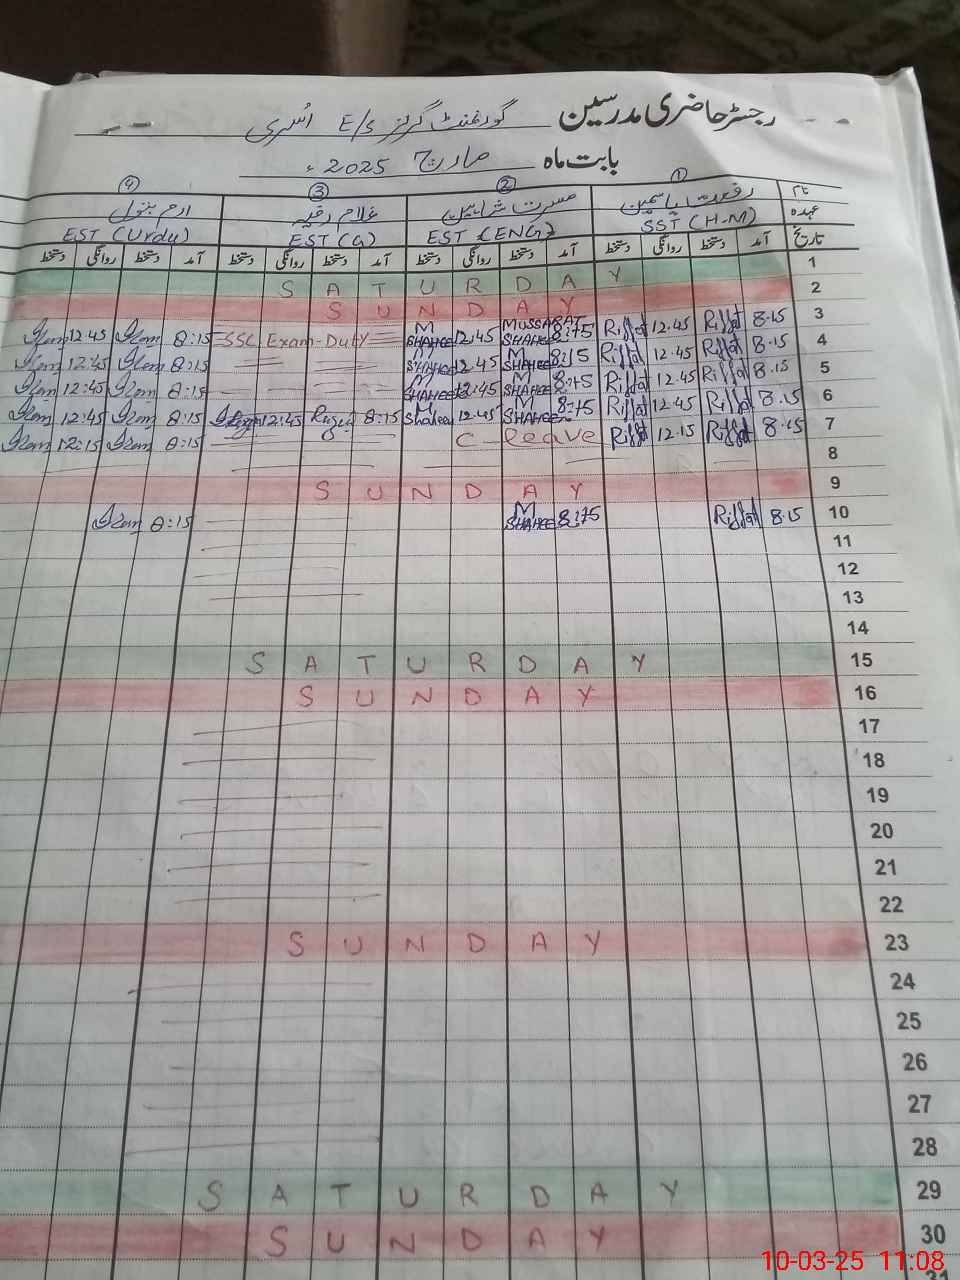 رجسٹر حاضری مدرسین گورنمنٹ گرلز E/S اُسری
بابت ماہ مارچ 2025ء
① ② ③ ④
نام رفعت یاسمین مسرت شاہین غلام رقیہ ارم بتول
عہدہ SST (H-M) EST (ENG) EST (G) EST (Urdu)
تاریخ آمد دستخط روانگی دستخط آمد دستخط روانگی دستخط آمد دستخط روانگی دستخط آمد دستخط روانگی دستخط
1 SATURDAY
2 SUNDAY
3 8.15 Riffat 12.45 Riffat 8:15 MUSSARAT SHAHEE 12.45 M SHAHEE SSC Exam-Duty 8:15 Ilam 12.45 Ilam
4 8.15 Riffat 12.45 Riffat 8:15 M SHAHEE 12.45 M SHAHEE 8:15 Ilam 12:45 Ilam
5 8.15 Riffat 12.45 Riffat 8:15 M SHAHEE 12:45 M SHAHEE 8:15 Ilam 12:45 Ilam
6 8.15 Riffat 12.45 Riffat 8:15 M SHAHEE 12.45 M Shahee 8:15 12:45 8:15 Ilam 12:45 Ilam
7 8.15 Riffat 12.15 Riffat C leave 8:15 Ilam 12:15 Ilam
8
9 SUNDAY
10 8.15 Riffat 8:15 M SHAHEE 8:15 Ilam
11
12
13
14
15 SATURDAY
16 SUNDAY
17
18
19
20
21
22
23 SUNDAY
24
25
26
27
28
29 SATURDAY
30 SUNDAY
31
10-03-25 11:08